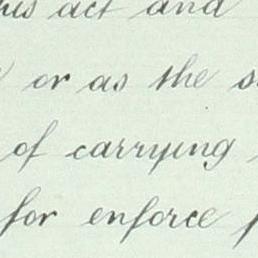 this act and
or as the
of carrying
for enforce